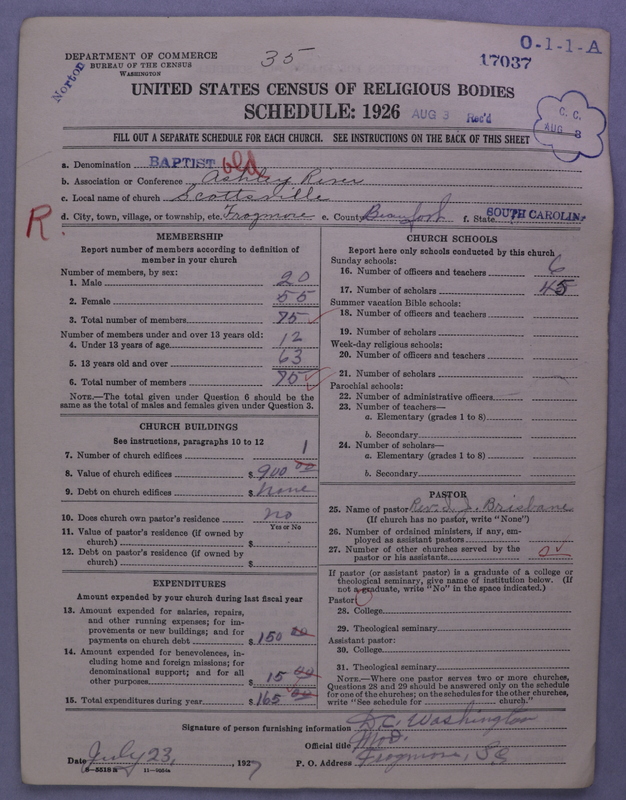 DEPARTMENT OF COMMERCE
BUREAU OF THE CENSUS
WASHINGTON
Norton
35
O-1-1-A
17037
UNITED STATES CENSUS OF RELIGIOUS BODIES
SCHEDULE: 1926
AUG 3 Rec'd
C. C.
AUG 8
FILL OUT A SEPARATE SCHEDULE FOR EACH CHURCH. SEE INSTRUCTIONS ON THE BACK OF THIS SHEET
a. Denomination BAPTIST old
b. Association or Conference Ashley River
c. Local name of church Scottsville
R
d. City, town, village, or township, etc. Frogmore e. County Beaufort f. State SOUTH CAROLIN
MEMBERSHIP
Report number of members according to definition of
member in your church
Number of members, by sex:
1. Male 20
2. Female 55
3. Total number of members 75
Number of members under and over 13 years old:
4. Under 13 years of age 12
5. 13 years old and over 63
6. Total number of members 75
NOTE.—The total given under Question 6 should be the
same as the total of males and females given under Question 3.
CHURCH BUILDINGS
See instructions, paragraphs 10 to 12
7. Number of church edifices 1
8. Value of church edifices $ 900 00
9. Debt on church edifices $ None
10. Does church own pastor's residence? No
Yes or No
11. Value of pastor's residence (if owned by
church) $
12. Debt on pastor's residence (if owned by
church) $
EXPENDITURES
Amount expended by your church during last fiscal year
13. Amount expended for salaries, repairs,
and other running expenses; for im-
provements or new buildings; and for
payments on church debt $ 150 00
14. Amount expended for benevolences, in-
cluding home and foreign missions; for
denominational support; and for all
other purposes $ 15 00
15. Total expenditures during year $ 165 00
CHURCH SCHOOLS
Report here only schools conducted by this church
Sunday schools:
16. Number of officers and teachers 6
17. Number of scholars 45
Summer vacation Bible schools:
18. Number of officers and teachers
19. Number of scholars
Week-day religious schools:
20. Number of officers and teachers
21. Number of scholars
Parochial schools:
22. Number of administrative officers
23. Number of teachers—
a. Elementary (grades 1 to 8)
b. Secondary
24. Number of scholars—
a. Elementary (grades 1 to 8)
b. Secondary
PASTOR
25. Name of pastor Rev. Brisbane
(If church has no pastor, write "None")
26. Number of ordained ministers, if any, em-
ployed as assistant pastors
27. Number of other churches served by the
pastor or his assistants 0
If pastor (or assistant pastor) is a graduate of a college or
theological seminary, give name of institution below. (If
not a graduate, write "No" in the space indicated.)
Pastor: 0
28. College
29. Theological seminary
Assistant pastor:
30. College
31. Theological seminary
NOTE.—Where one pastor serves two or more churches,
Questions 28 and 29 should be answered only on the schedule
for one of the churches; on the schedules for the other churches,
write "See schedule for church."
Signature of person furnishing information D.C. Washington
Official title Mod.
Date July 23, 1927 P. O. Address Frogmore, S.C.
8-5518 a 11-8804a